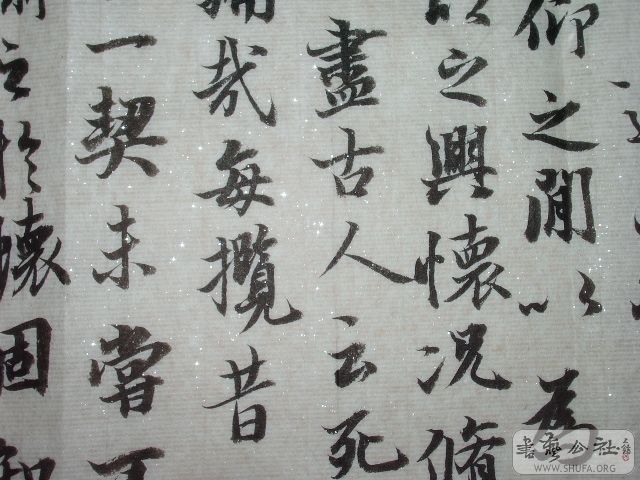 仰之間以為
之興懷况脩
盡古人云死
哉每攬昔
一契未嘗不
之於懷固知
書藝公社
WWW.SHUFA.ORG